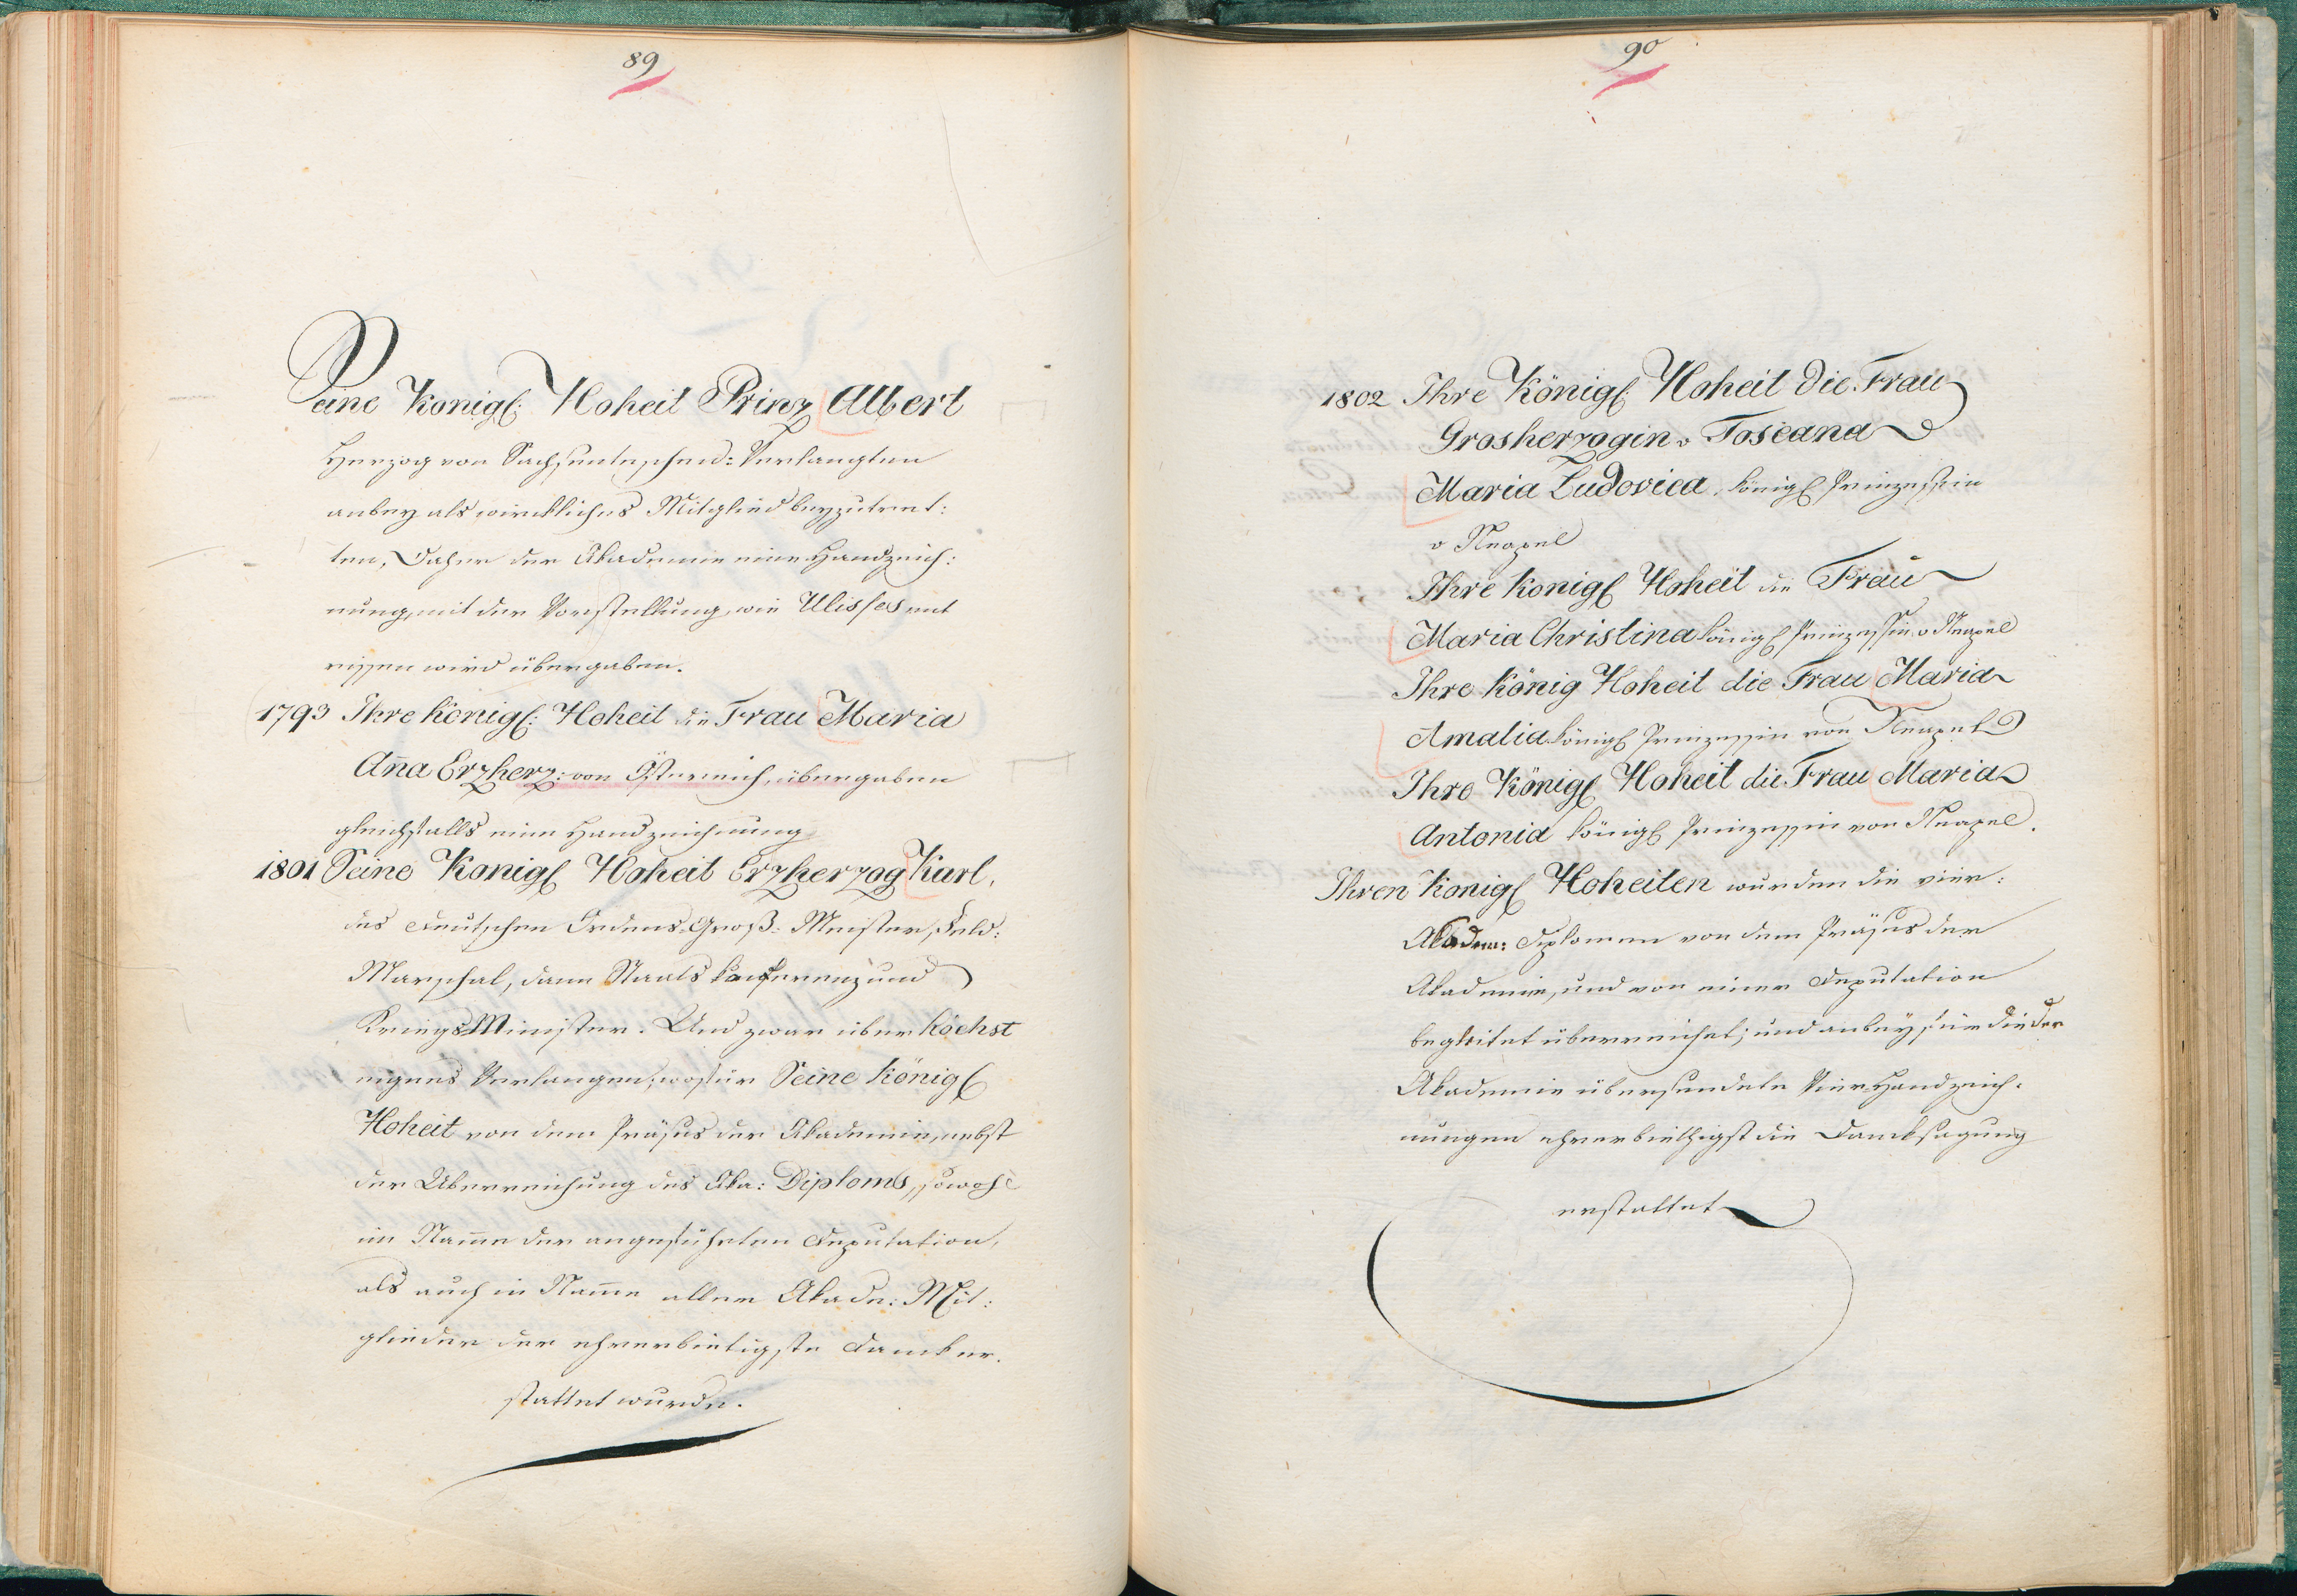 89
Seine Königl: Hoheit Prinz Albert
Herzog von Sachsenteschen: Verlangten
anbey als wirckliches Mitglied beyzutret:
ten, Daher der Akademie eine Handzeich:
nung, mit der Vorstellung, wie Ulisses ent
rissen wird übergaben.
1793 Ihre Königl: Hoheit die Frau Maria
Aña Erzherz: von Östereich, übergaben
gleichfalls eine Handzeichnung
1801 Seine Königl Hoheit Erzherzog Karl,
des deutschen Ordens-Groß-Meister, Feld:
Marschal, dann Staats konferenz und
Kriegs Minister. Und zwar über höchst
eigenes Verlangen; wofür Seine Königl
Hoheit von dem Präses der Akademie, nebst
der Überreichung des Aka: Diploms, sowohl
im Name der angeführten Deputation,
als auch in Name aller Akade: Mit:
glieder der ehrerbietigste Danck er.
stattet wurde.
90
1802 Ihre Königl: Hoheit die Frau
Grosherzogin v Toscana
Maria Ludovica, königl Prinzessin
v Neapel
Ihre Königl Hoheit die Frau
Maria Christina königl Prinzessin v Neapel
Ihre König Hoheit die Frau Maria
Amalia königl Prinzessin von Neapel
Ihre Königl Hoheit die Frau Maria
Antonia königl Prinzessin von Neapel.
Ihren Königl Hoheiten wurden die vier:
Akadem: Diplomen von dem Präses der
Akademie, und von einer Deputation
begleitet überreichet; und anbey für die der
Akademie übersendete Vier Handzeich:
nungen ehrerbiethigst die Dancksagung
erstattet